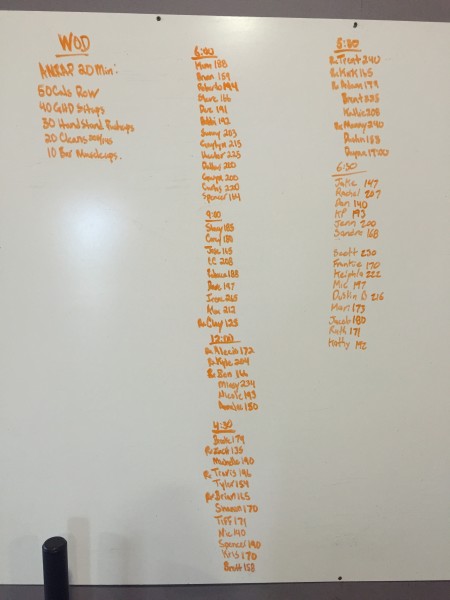 WOD
AMRAP 20 min:
50 Cals Row
40 GHD Situps
30 Hand Stand Pushups
20 Cleans
10 Bar Muscleups.
6:00
188
Brian 159
Roberto 194
166
191
Bobbi 192
Sunny 203
213
Hunter 225
200
200
Curtis 220
Spencer 114
9:00
Stacy 185
Cory 180
165
CC 208
Rebecca 188
Dave 197
Irene 265
212
Rx Clay 125
12:00
Rx Alexis 172
Rx Kyle 204
Rx Ben 166
Missy 234
Nicole 193
150
4:30
Brook 179
Rx Zack 135
Michelle 190
Rx Travis 196
Tyler 154
Rx Brian 165
Sinead 170
Tiff 171
Nic 140
Spencer 190
Kris 170
Brett 158
5:30
Rx Trent 240
Rx Kirk 165
Rx Adam 179
Brent 225
Kallie 208
Rx Manny 240
Dustin 183
6:30
Jake 147
Rachel 227
Dan 140
KP 193
Jenn 200
Sandra 168
Scott 230
Frankie 170
222
Mic 197
Dustin B 216
Mari 173
Jacob 180
Ruth 171
Kathy 192